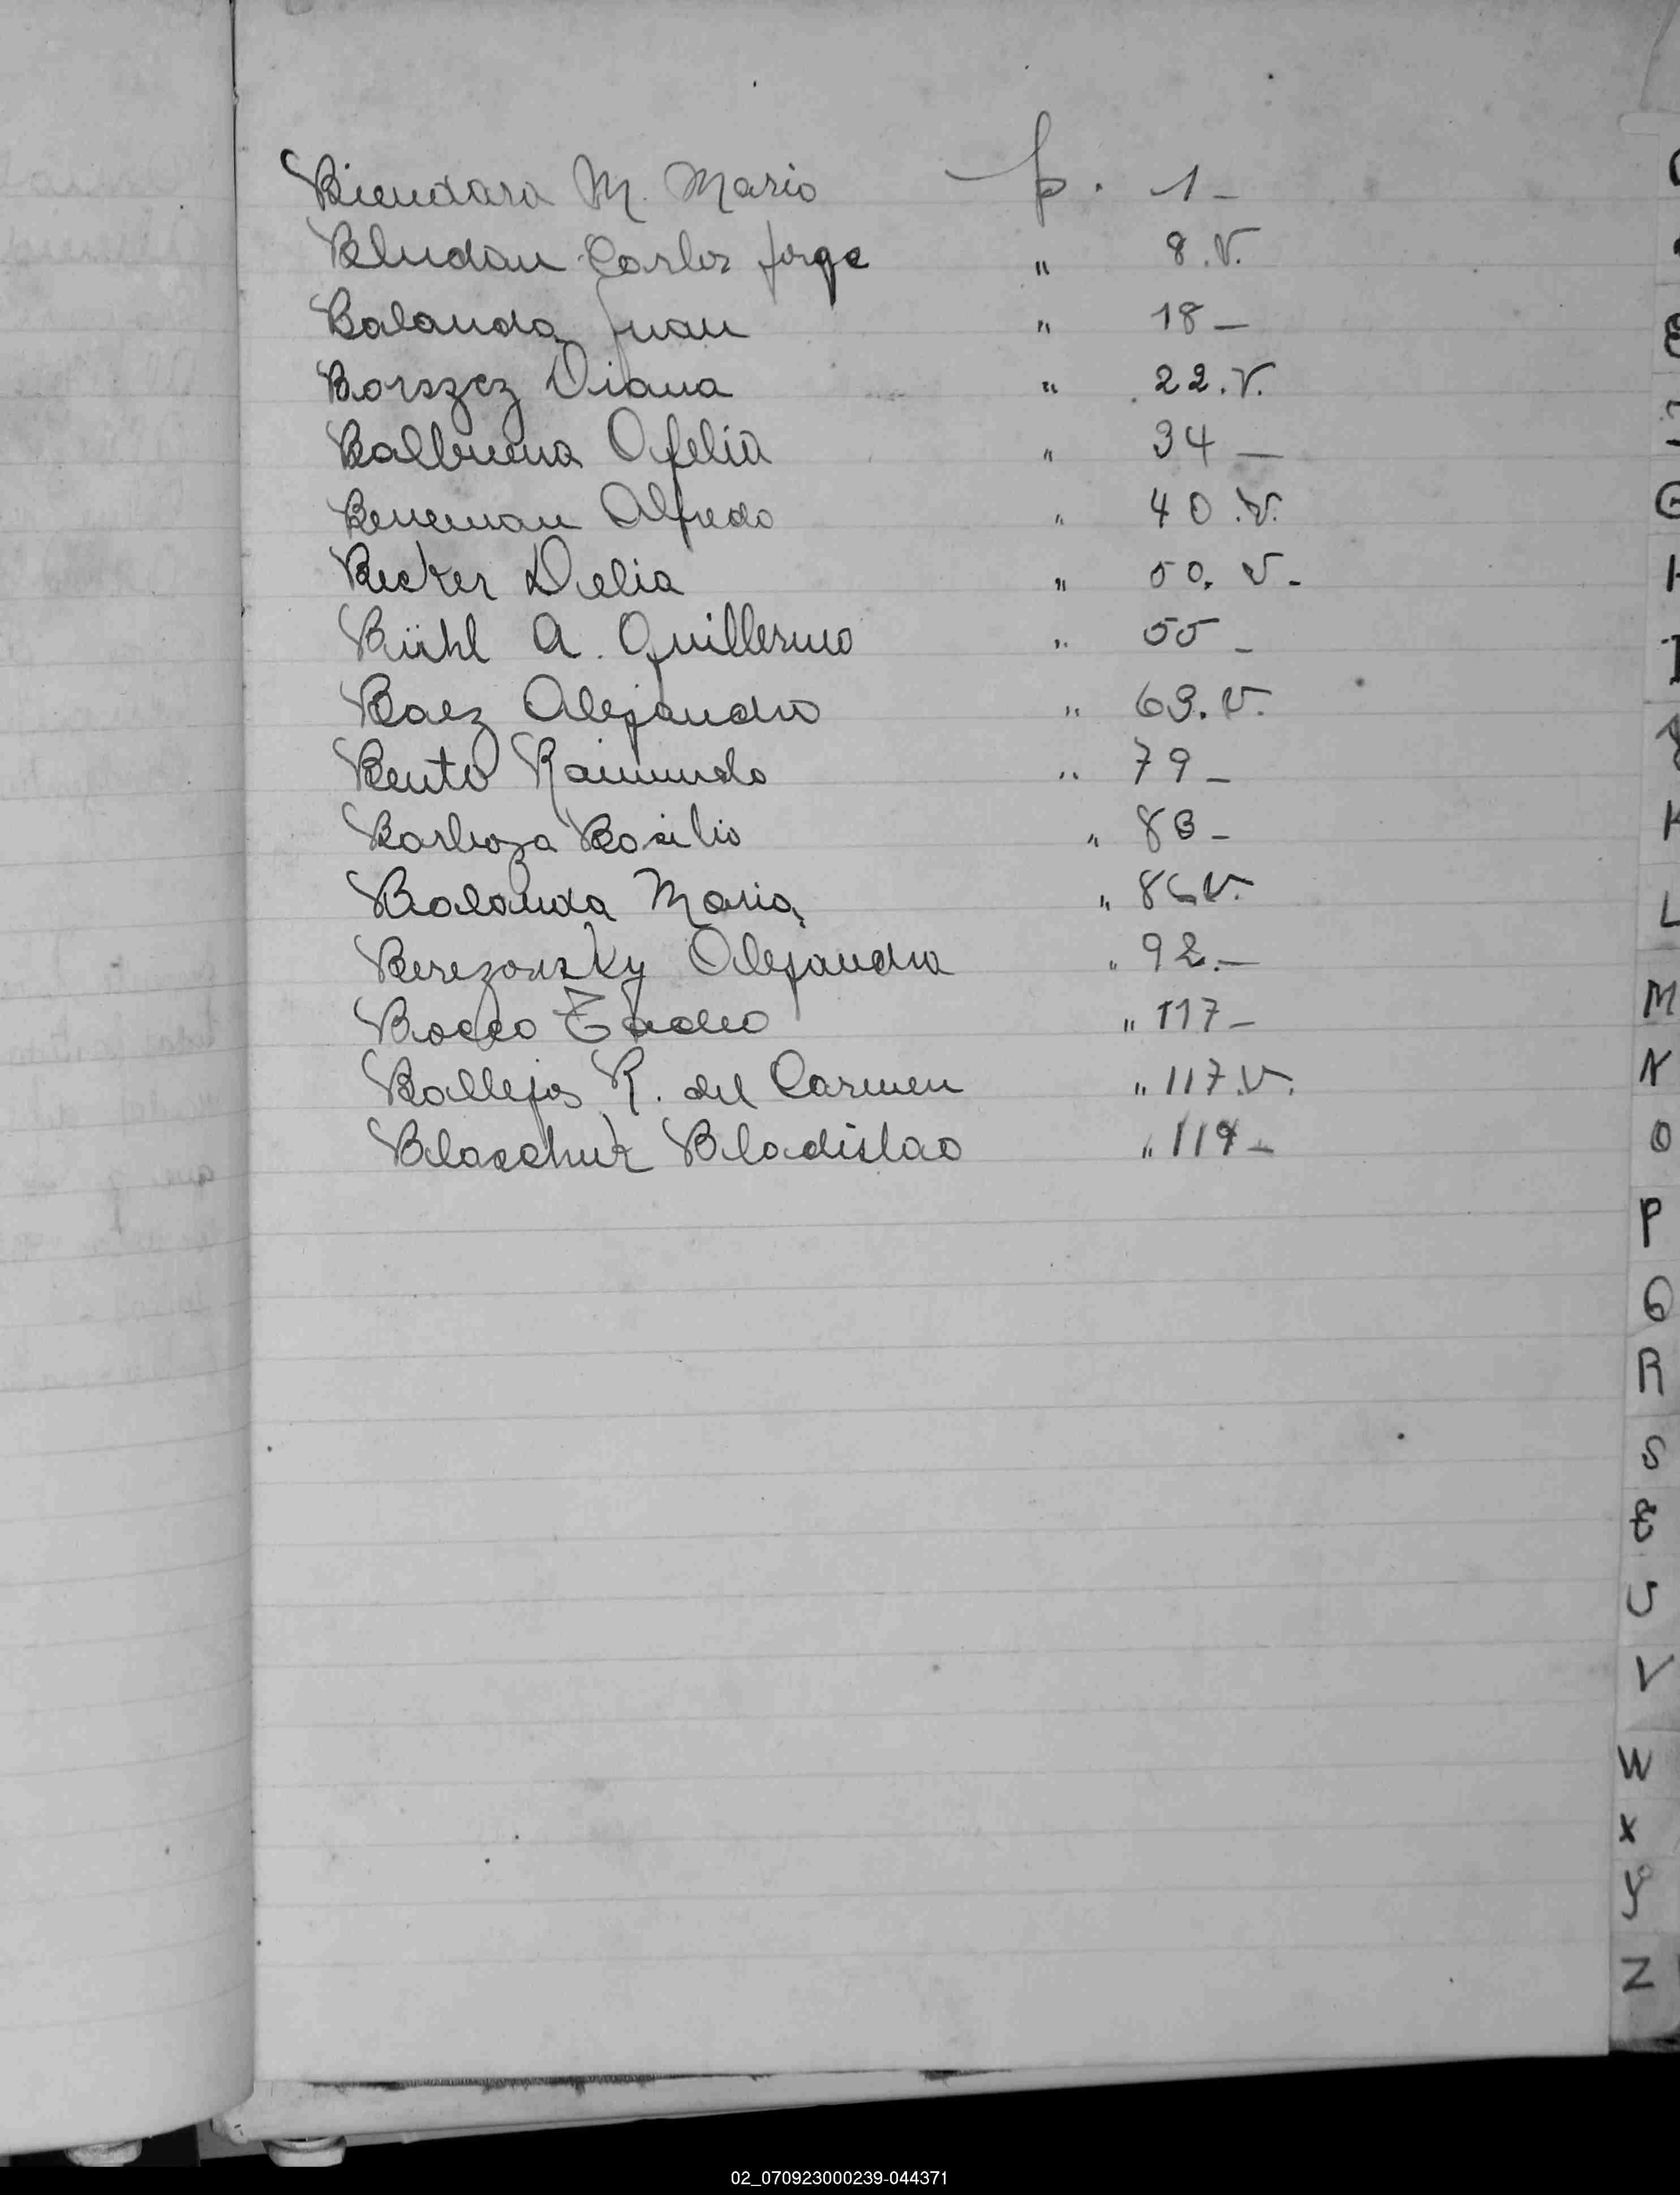 Biendara M. Mario p. 1 -
Bludau Carlos Jorge " 8.V.
Balanda Juan " 18 -
Borszez Diana " 22.V.
Balbuena Ofelia " 34 -
Beneman Alfredo " 40.V.
Becker Delia " 50. V-
Bühl A. Guillermo " 55 -
Baez Alejandro " 69.V.
Bento Raimundo " 79 -
Barboza Basilio " 83 -
Balanda Maria " 86V.
Berezowsky Alejandra " 92.-
Bocco Tadeo " 117 -
Ballejos R. del Carmen " 117.V.
Blaschuk Bladislao " 119 -
E
G
H
I
K
L
M
N
O
P
Q
R
S
T
U
V
W
X
Y
Z
02_070923000239-044371